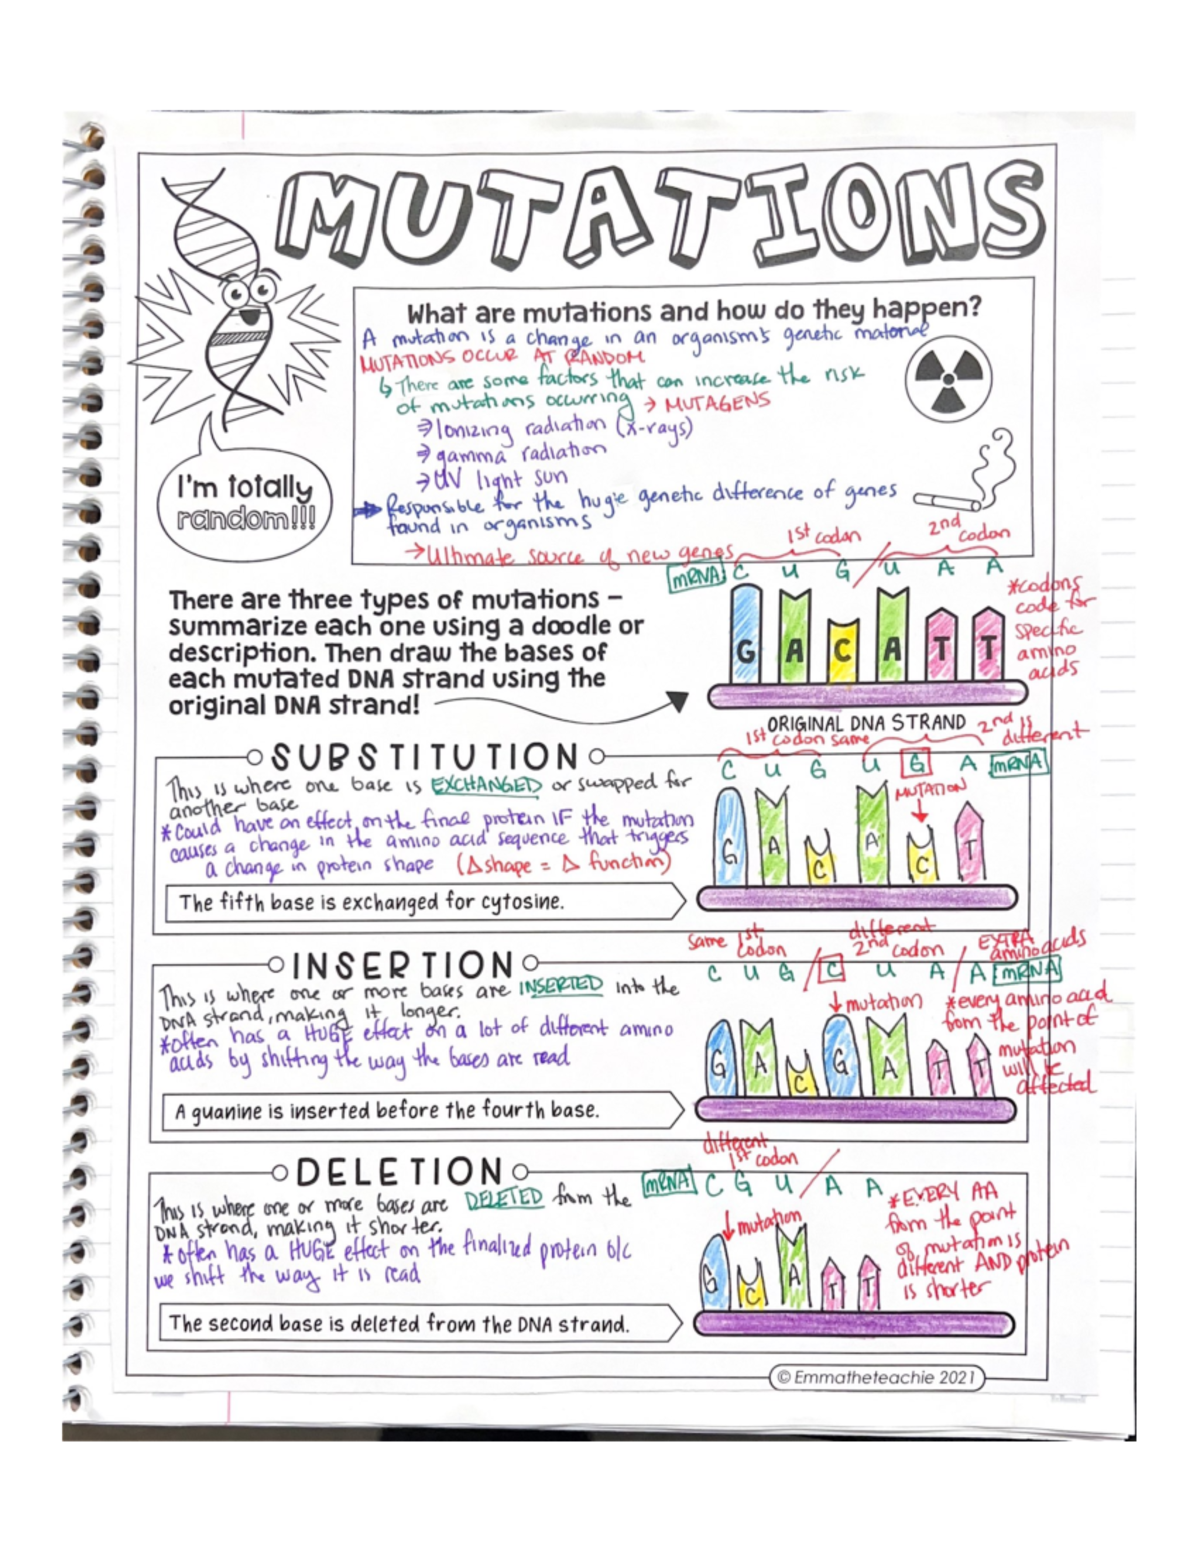 MUTATIONS
What are mutations and how do they happen?
A mutation is a change in an organism's genetic material
MUTATIONS OCCUR AT RANDOM
↳ There are some factors that can increase the risk
of mutations occurring → MUTAGENS
⇒ Ionizing radiation (x-rays)
⇒ gamma radiation
⇒ UV light sun
Responsible for the huge genetic difference of genes
found in organisms
→ Ultimate source of new genes
I'm totally
random!!!
There are three types of mutations –
summarize each one using a doodle or
description. Then draw the bases of
each mutated DNA strand using the
original DNA strand!
1st codon 2nd codon
mRNA C U G / U A A
G A C A T T
*codons
code for
specific
amino
acids
ORIGINAL DNA STRAND
SUBSTITUTION
This is where one base is EXCHANGED or swapped for
another base
*Could have an effect on the final protein IF the mutation
causes a change in the amino acid sequence that triggers
a change in protein shape (Δshape = Δ function)
The fifth base is exchanged for cytosine.
1st codon same 2nd is
different
C U G U G A mRNA
MUTATION
G A C A C T
INSERTION
This is where one or more bases are INSERTED into the
DNA strand, making it longer.
*often has a HUGE effect on a lot of different amino
acids by shifting the way the bases are read
A guanine is inserted before the fourth base.
same 1st
codon
different
2nd codon
EXTRA
amino acids
C U G / C U A / A mRNA
↓ mutation
*every amino acid
from the point of
mutation
will be
affected
G A C G A T T
DELETION
This is where one or more bases are DELETED from the
DNA strand, making it shorter.
*often has a HUGE effect on the finalized protein b/c
we shift the way it is read
The second base is deleted from the DNA strand.
different
1st codon
mRNA C G U / A A
↓ mutation
*EVERY AA
from the point
of mutation is
different AND protein
is shorter
G C A T T
© Emmatheteachie 2021